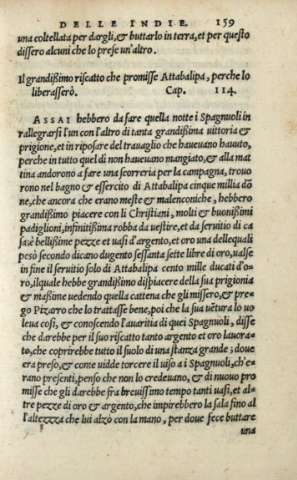 DELLE INDIE. 159
una coltellata per dargli, & buttarlo in terra, et per questo
dissero alcuni che lo prese un'altro.
Il grandißimo riscatto che promisse Attabalipa, perche lo
liberasserò. Cap. 114.
ASSAI hebbero da fare quella notte i Spagnuoli in
rallegrarsi l'un con l'altro di tanta grandißima uittoria &
prigione, et in riposare del trauaglio che haueuano hauuto,
perche in tutto quel dì non haueuano mangiato, & alla mat
tina andorono a fare una scorreria per la campagna, trouo
rono nel bagno & essercito di Attabalipa cinque milia dō
ne, che ancora che erano meste & malenconiche, hebbero
grandißimo piacere con li Christiani, molti & buonißimi
padiglioni, infinitißima robba da uestire, et da seruitio di ca
sa, & bellißime pezze et uasi d'argento, et oro una delle quali
pesò secondo dicano dugento sessanta sette libre di oro, ualse
in fine il seruitio solo di Attabalipa cento mille ducati d'o-
ro, il quale hebbe grandißimo dispiacere della sua prigionia
& maßime uedendo quella cattena che gli missero, & pre-
go Pizarro che lo trattasse bene, poi che la sua uētura lo uo
leua così, & conoscendo l'auaritia di quei Spagnuoli, disse
che darebbe per il suo riscatto tanto argento et oro lauora-
to, che coprirebbe tutto il suolo di una stanza grande; doue
era preso, & come uidde torcere il uiso a i Spagnuoli, ch'e-
rano presenti, penso che non lo credeuano, & di nuouo pro
misse che gli darebbe fra breuissimo tempo tanti uasi, et al-
tre pezze di oro & argento, che impirebbero la sala fino al
l'altezzza che lui alzò con la mano, per doue fece buttare
una